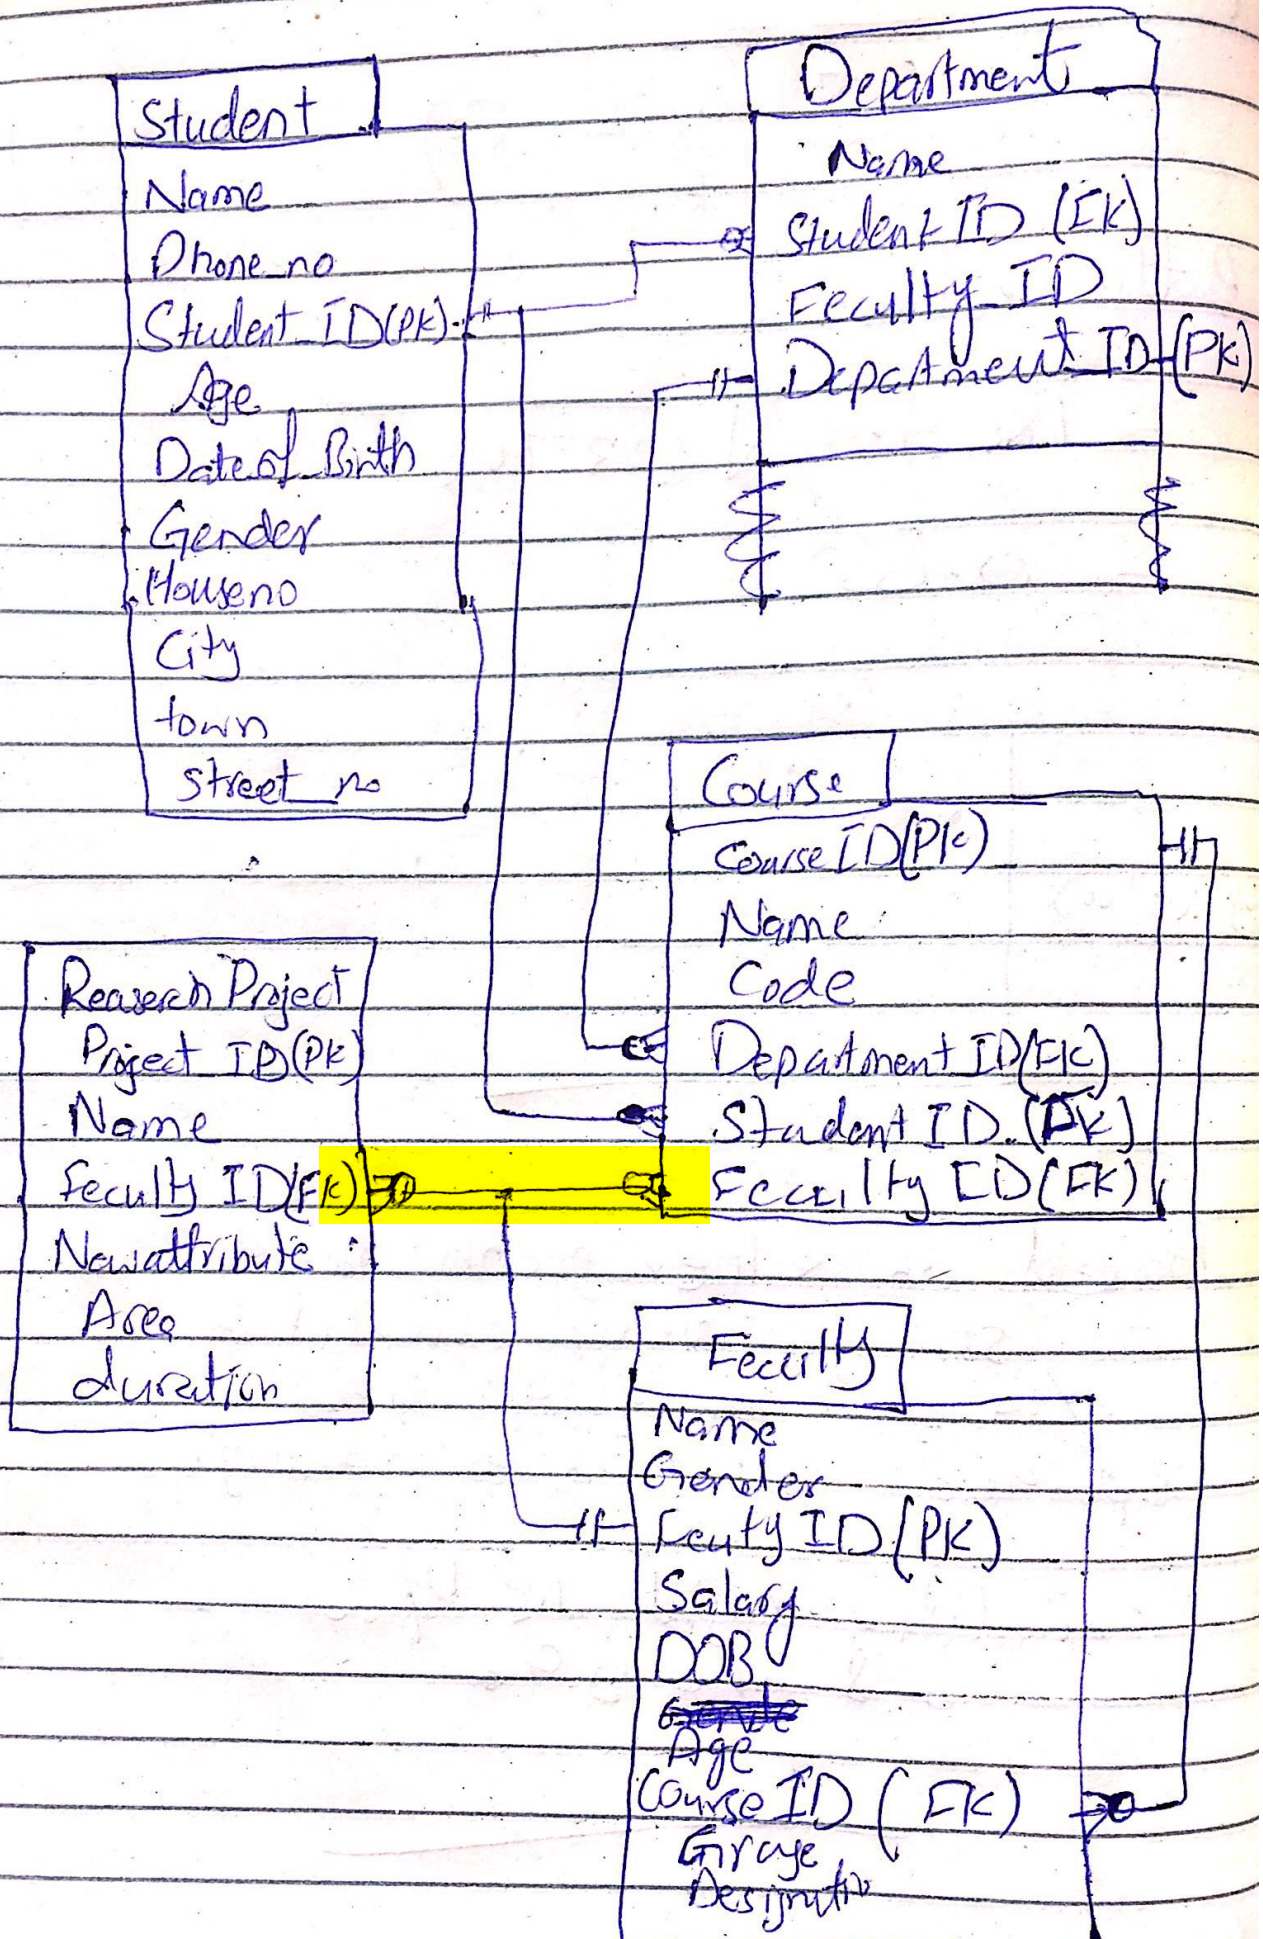 Student
Name
Phone_no
Student_ID(PK)
Age
Date of Birth
Gender
House no
City
town
street_no
Department
Name
Student ID (FK)
Feculty_ID
Department_ID (PK)
Course
Course ID(PK)
Name
Code
Department ID(FK)
Student ID (FK)
Feculty ID (FK)
Project
Project ID(PK)
Name
Feculty ID(FK)
Area
duration
Feculty
Name
Gender
Fecuty ID (PK)
Salary
DOB
Age
Course ID (FK)